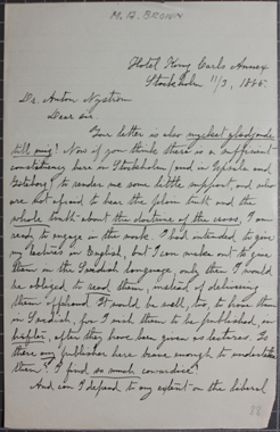 M. A. BROWN
Hotel King Carls Annex
Stockholm 11/3, 1885.
Dr. Anton Nyström
Dear Sir.
Your letter is also mycket glädjande
till mig! Now if you think there is a sufficient
constituency here in Stockholm (and in Upsala and
Göteborg) to render me some little support, and who
are not afraid to hear the plain truth and the
whole truth about the doctrine of the cross, I am
ready to engage in the work. I had intended to give
my lectures in English, but I can make out to give
them in the Swedish language, only then I would
be obliged to read them, instead of delivering
them offhand. It would be well, too, to have them
in Swedish, for I wish them to be published, in
häfter, after they have been given as lectures. Is
there any publisher here brave enough to undertake
them? I find so much cowardice!
And can I depend to any extent on the liberal
88